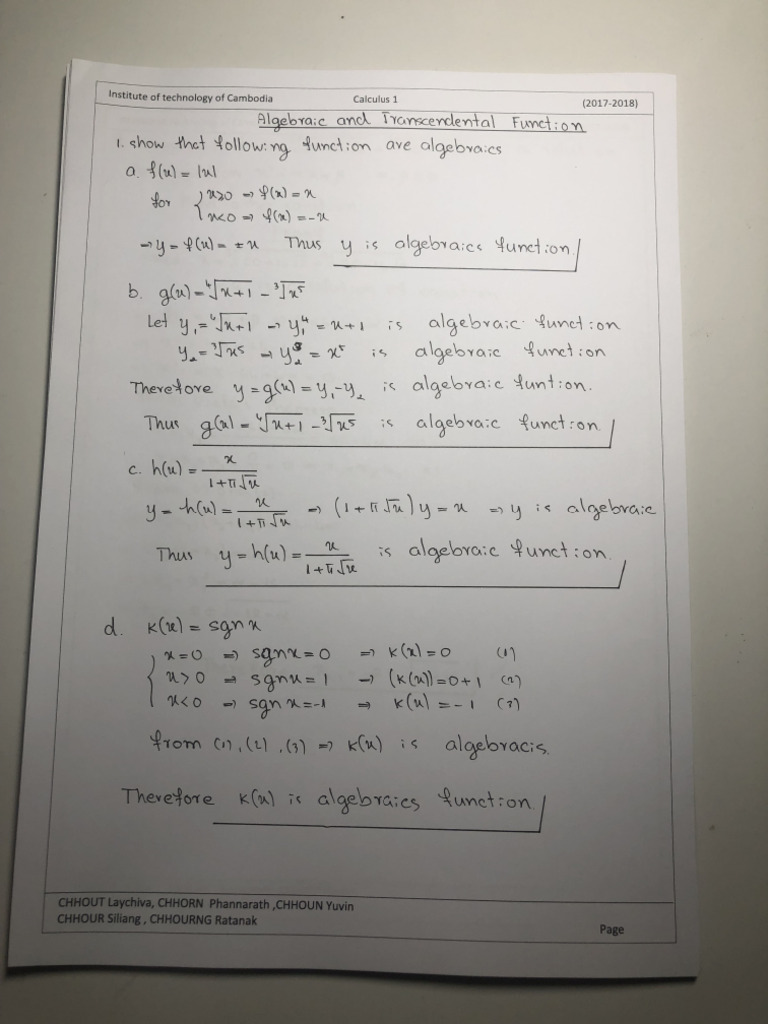 Institute of technology of Cambodia Calculus 1 (2017-2018)
Algebraic and Transcendental Function
1. show that following function are algebraics
a. f(x) = |x|
for { x≥0 ⇒ f(x) = x
x<0 ⇒ f(x) = -x
→ y = f(x) = ±x Thus y is algebraics function.
b. g(x) = ⁴√(x+1) - ³√(x⁵)
Let y₁ = ⁴√(x+1) → y₁⁴ = x+1 is algebraic function
y₂ = ³√(x⁵) → y₂³ = x⁵ is algebraic function
Therefore y = g(x) = y₁ - y₂ is algebraic funtion.
Thus g(x) = ⁴√(x+1) - ³√(x⁵) is algebraic function.
c. h(x) = x/(1+π√x)
y = h(x) = x/(1+π√x) ⇒ (1+π√x)y = x ⇒ y is algebraic
Thus y = h(x) = x/(1+π√x) is algebraic function.
d. k(x) = sgn x
{ x=0 ⇒ sgn x = 0 ⇒ k(x) = 0 (1)
x>0 ⇒ sgn x = 1 → (k(x)) = 0+1 (2)
x<0 → sgn x = -1 ⇒ k(x) = -1 (3)
from (1), (2), (3) ⇒ k(x) is algebracis.
Therefore k(x) is algebraics function.
CHHOUT Laychiva, CHHORN Phannarath ,CHHOUN Yuvin
CHHOUR Siliang , CHHOURNG Ratanak
Page